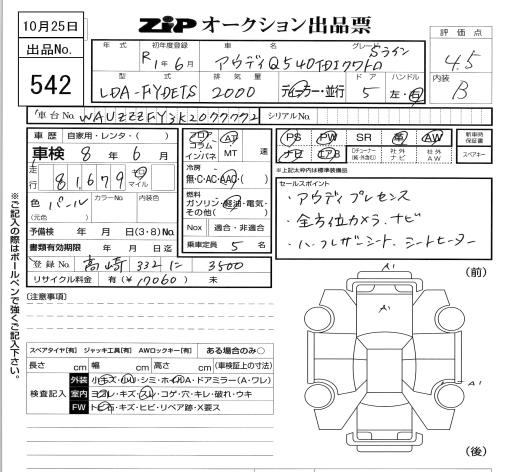 10月25日
ZiP オークション出品票
出品No.
542
評価点
4.5
内装
B
年式
初年度登録
車名
グレード
R1年6月
アウディQ5 40TDIクワトロ
Sライン
型式
排気量
ドア
ハンドル
LDA-FYDETS
2000
ディーラー・並行
5
左・右
車台No.
WAUZZZFY3K2077772
シリアルNo.
車歴
自家用・レンタ・( )
車検 8年6月
走行
81,679
キロ
マイル
色
パール
(元色)
カラーNo.
内装色
予備検 年 月 日(3・8)No.
書類有効期限 年 月 日迄
登録No.
高崎 332 に 3500
リサイクル料金
有(¥17060) 未
フロア
コラム
インパネ
AT
MT
速
冷房
無・C・AC・AAC・( )
燃料
ガソリン・軽油・電気・
その他( )
Nox
適合・非適合
乗車定員 5 名
PS
PW
SR
革
AW
ナビ
エアB
Dチューナー
(純・外含む)
社外
ナビ
社外
AW
新車時
保証書
スペアキー
※上記太枠内は標準装備品
セールスポイント
・アウディプレセンス
・全方位カメラ、ナビ
・ハーフレザーシート、シートヒーター
※ご記入の際はボールペンで強くご記入下さい。
[注意事項]
スペアタイヤ[有] ジャッキ工具[有] AWロックキー[有] ある場合のみ○
長さ cm 幅 cm 高さ cm (車検証上の寸法)
検査記入
外装
小キズ・小ヘコ・シミ・ホイルA・ドアミラー(A・ワレ)
室内
ヨゴレ・キズ・スレ・コゲ・穴・キレ・破れ・ウキ
FW
トビ石・キズ・ヒビ・リペア跡・X要ス
(前)
A1
A1
A1
(後)